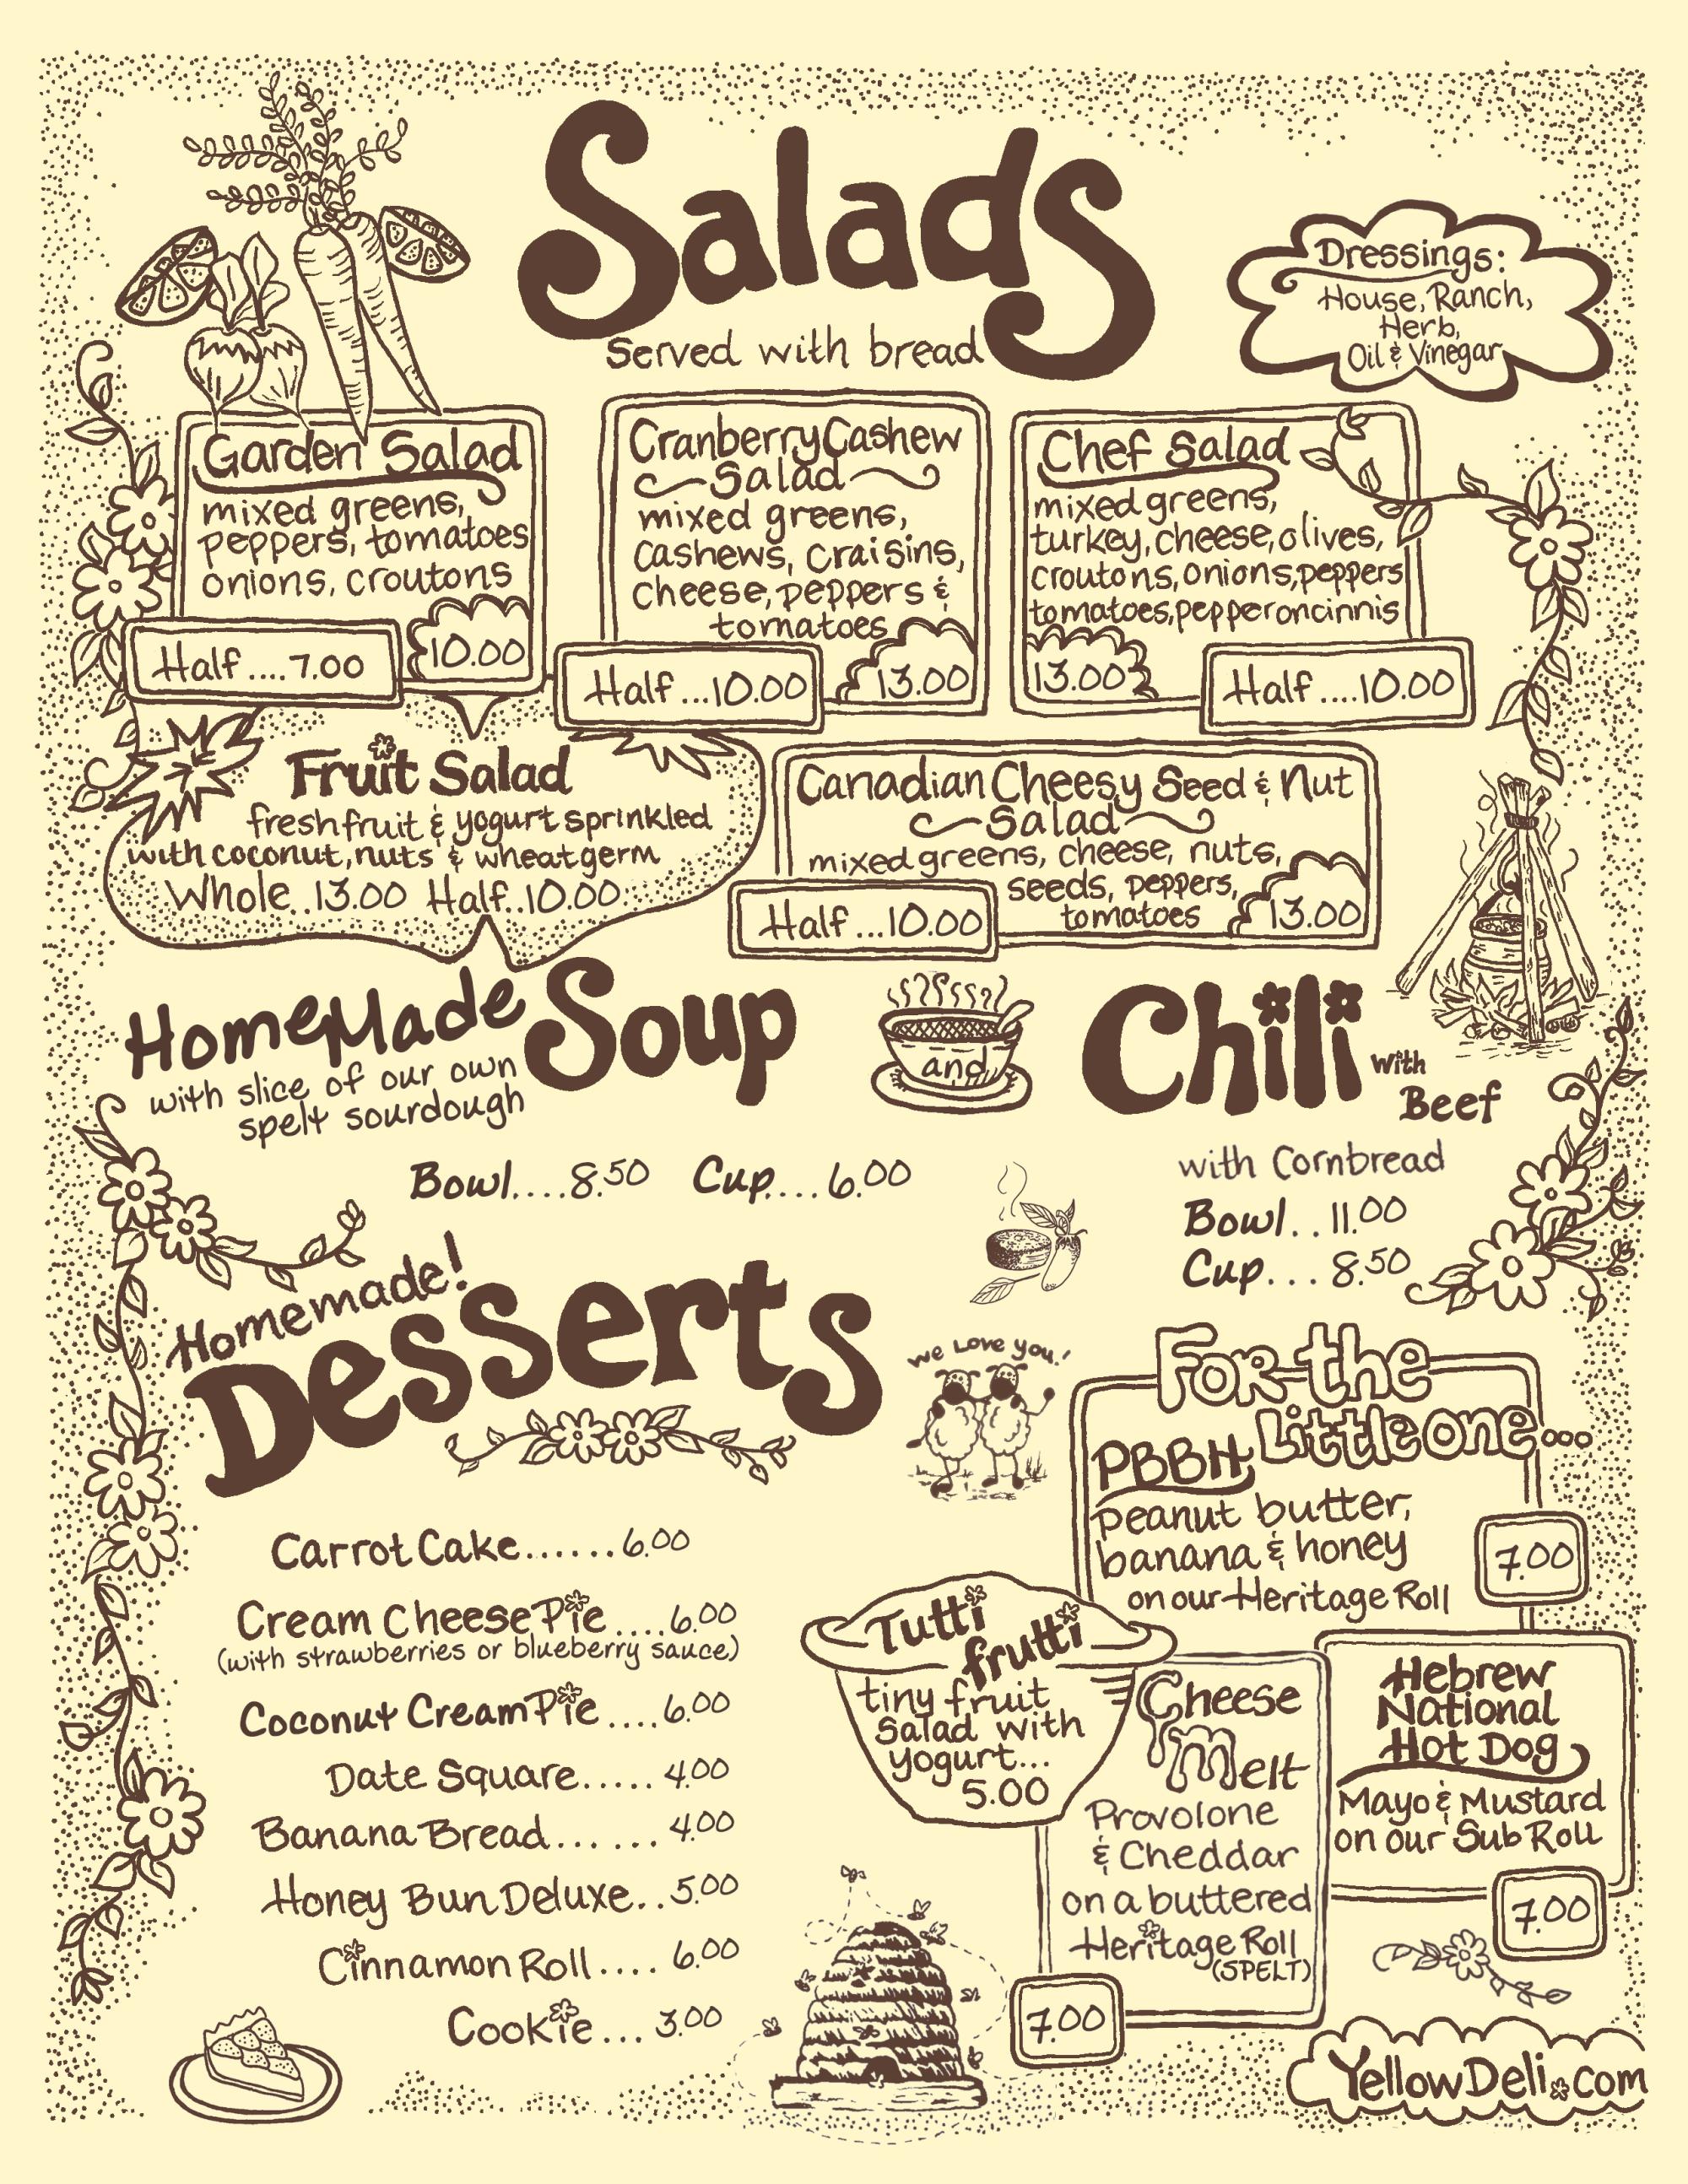 Salads
Served with bread
Dressings:
House, Ranch,
Herb,
Oil & Vinegar
Garden Salad
mixed greens,
peppers, tomatoes
onions, croutons
Half....7.00
10.00
Cranberry Cashew
Salad
mixed greens,
cashews, craisins,
cheese, peppers &
tomatoes
Half...10.00
13.00
Chef Salad
mixed greens,
turkey, cheese, olives,
croutons, onions, peppers
tomatoes, pepperoncinnis
13.00
Half....10.00
Fruit Salad
fresh fruit & yogurt sprinkled
with coconut, nuts & wheatgerm
Whole..13.00 Half..10.00
Canadian Cheesy Seed & Nut
Salad
mixed greens, cheese, nuts,
seeds, peppers,
tomatoes
Half...10.00
13.00
HomeMade Soup
with slice of our own
spelt sourdough
Bowl....8.50 Cup....6.00
and
Chili with
Beef
with Cornbread
Bowl..11.00
Cup...8.50
Homemade!
Desserts
Carrot Cake......6.00
Cream Cheese Pie....6.00
(with strawberries or blueberry sauce)
Coconut Cream Pie....6.00
Date Square.....4.00
Banana Bread......4.00
Honey Bun Deluxe..5.00
Cinnamon Roll....6.00
Cookie...3.00
We Love you!
For the
Little one...
PBBH
peanut butter,
banana & honey
on our Heritage Roll
7.00
Tutti
frutti
tiny fruit
salad with
yogurt...
5.00
Cheese
Melt
Provolone
& Cheddar
on a buttered
Heritage Roll
(SPELT)
7.00
Hebrew
National
Hot Dog
Mayo & Mustard
on our Sub Roll
7.00
YellowDeli.com